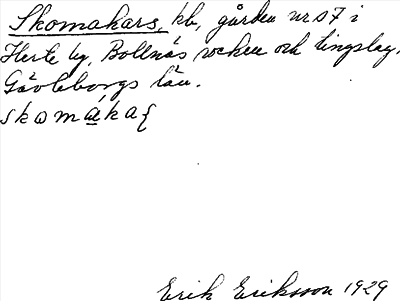 Skomakars, kb, gården nr 57 i
Herte by, Bollnäs socken och tingslag,
Gävleborgs län.
skomáka{
Erik Eriksson 1929